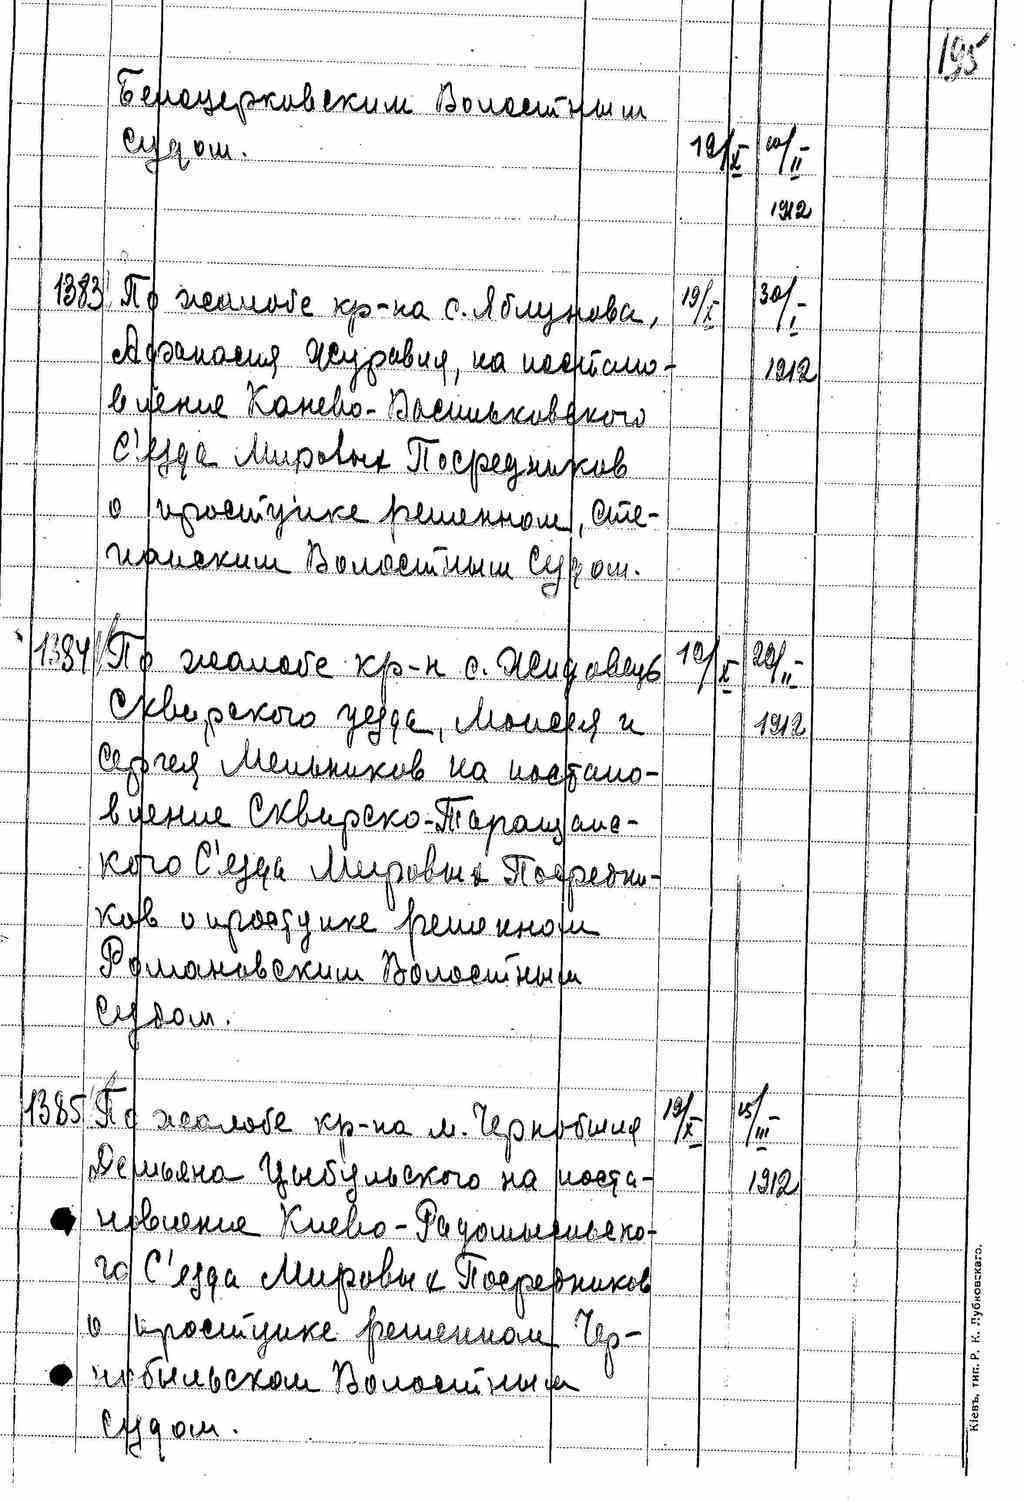 195
Белоцерковским Волостным
Судом. 19/X 20/II
1912
1383 По жалобе кр-на с. Яблунова, 19/X 30/I
Афанасия Журавля, на постано- 1912
вление Канево-Васильковского
С'езда Мировых Посредников
о проступке решенном, Сте-
панским Волостным Судом.
1384 По жалобе кр-н с. Жидовець 19/X 29/II
Сквирского уезда, Моисея и 1912
Сергея Мельников на постано-
вление Сквирско-Таращанс-
кого С'езда Мировых Посредни-
ков о проступке решенном
Романовским Волостным
Судом.
1385 По жалобе кр-на м. Чернобыля 19/X 15/III
Демьяна Цыбульского на поста- 1912
новление Киево-Радомысльско-
го С'езда Мировых Посредников
о проступке решенном Чер-
нобыльском Волостным
Судом.
Кіевъ, тип. Р. К. Лубковскаго.